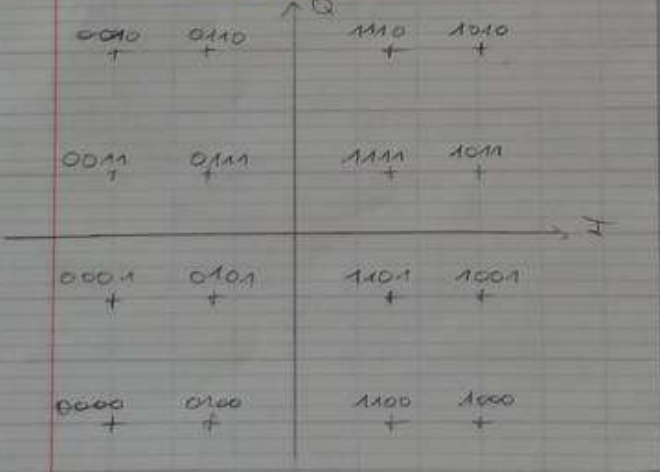 Q
0010 0110 1110 1010
0011 0111 1111 1011
I
0001 0101 1101 1001
0000 0100 1100 1000